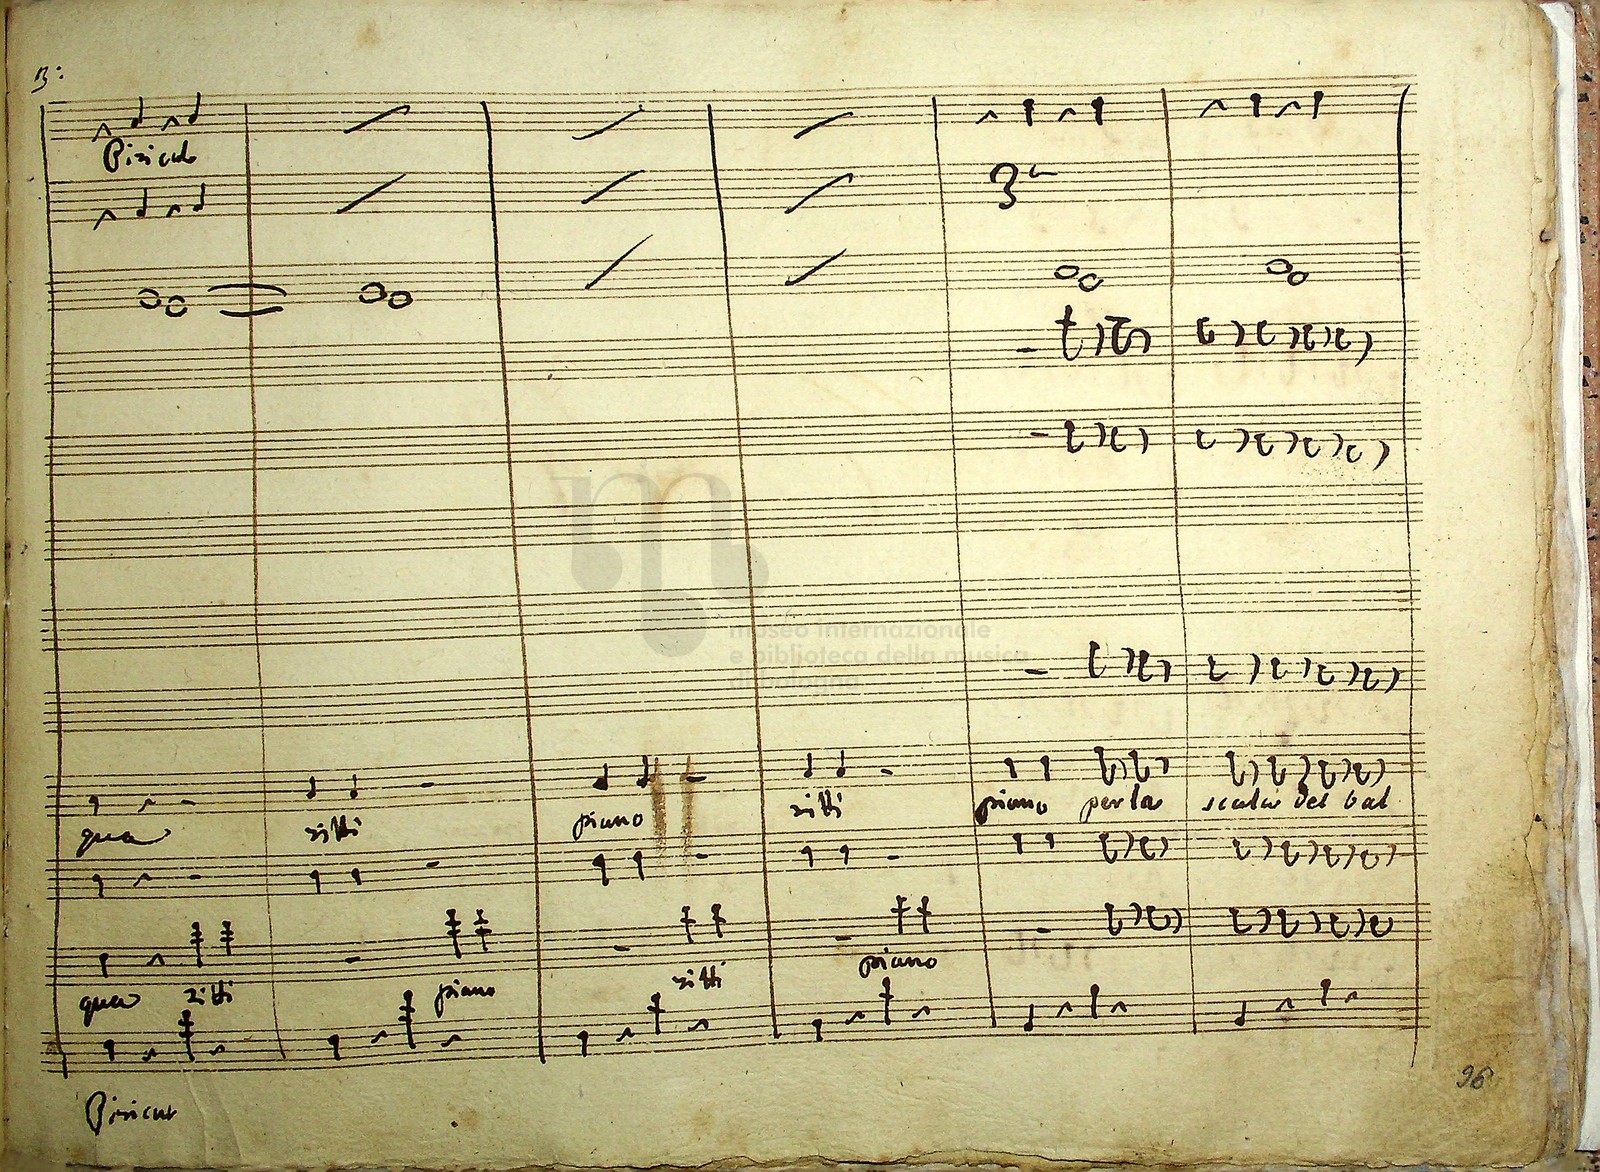 3:
museo internazionale
e biblioteca della musica
di bologna
qua zitti piano zitti piano per la scala del bal
qua zitti piano zitti piano
96